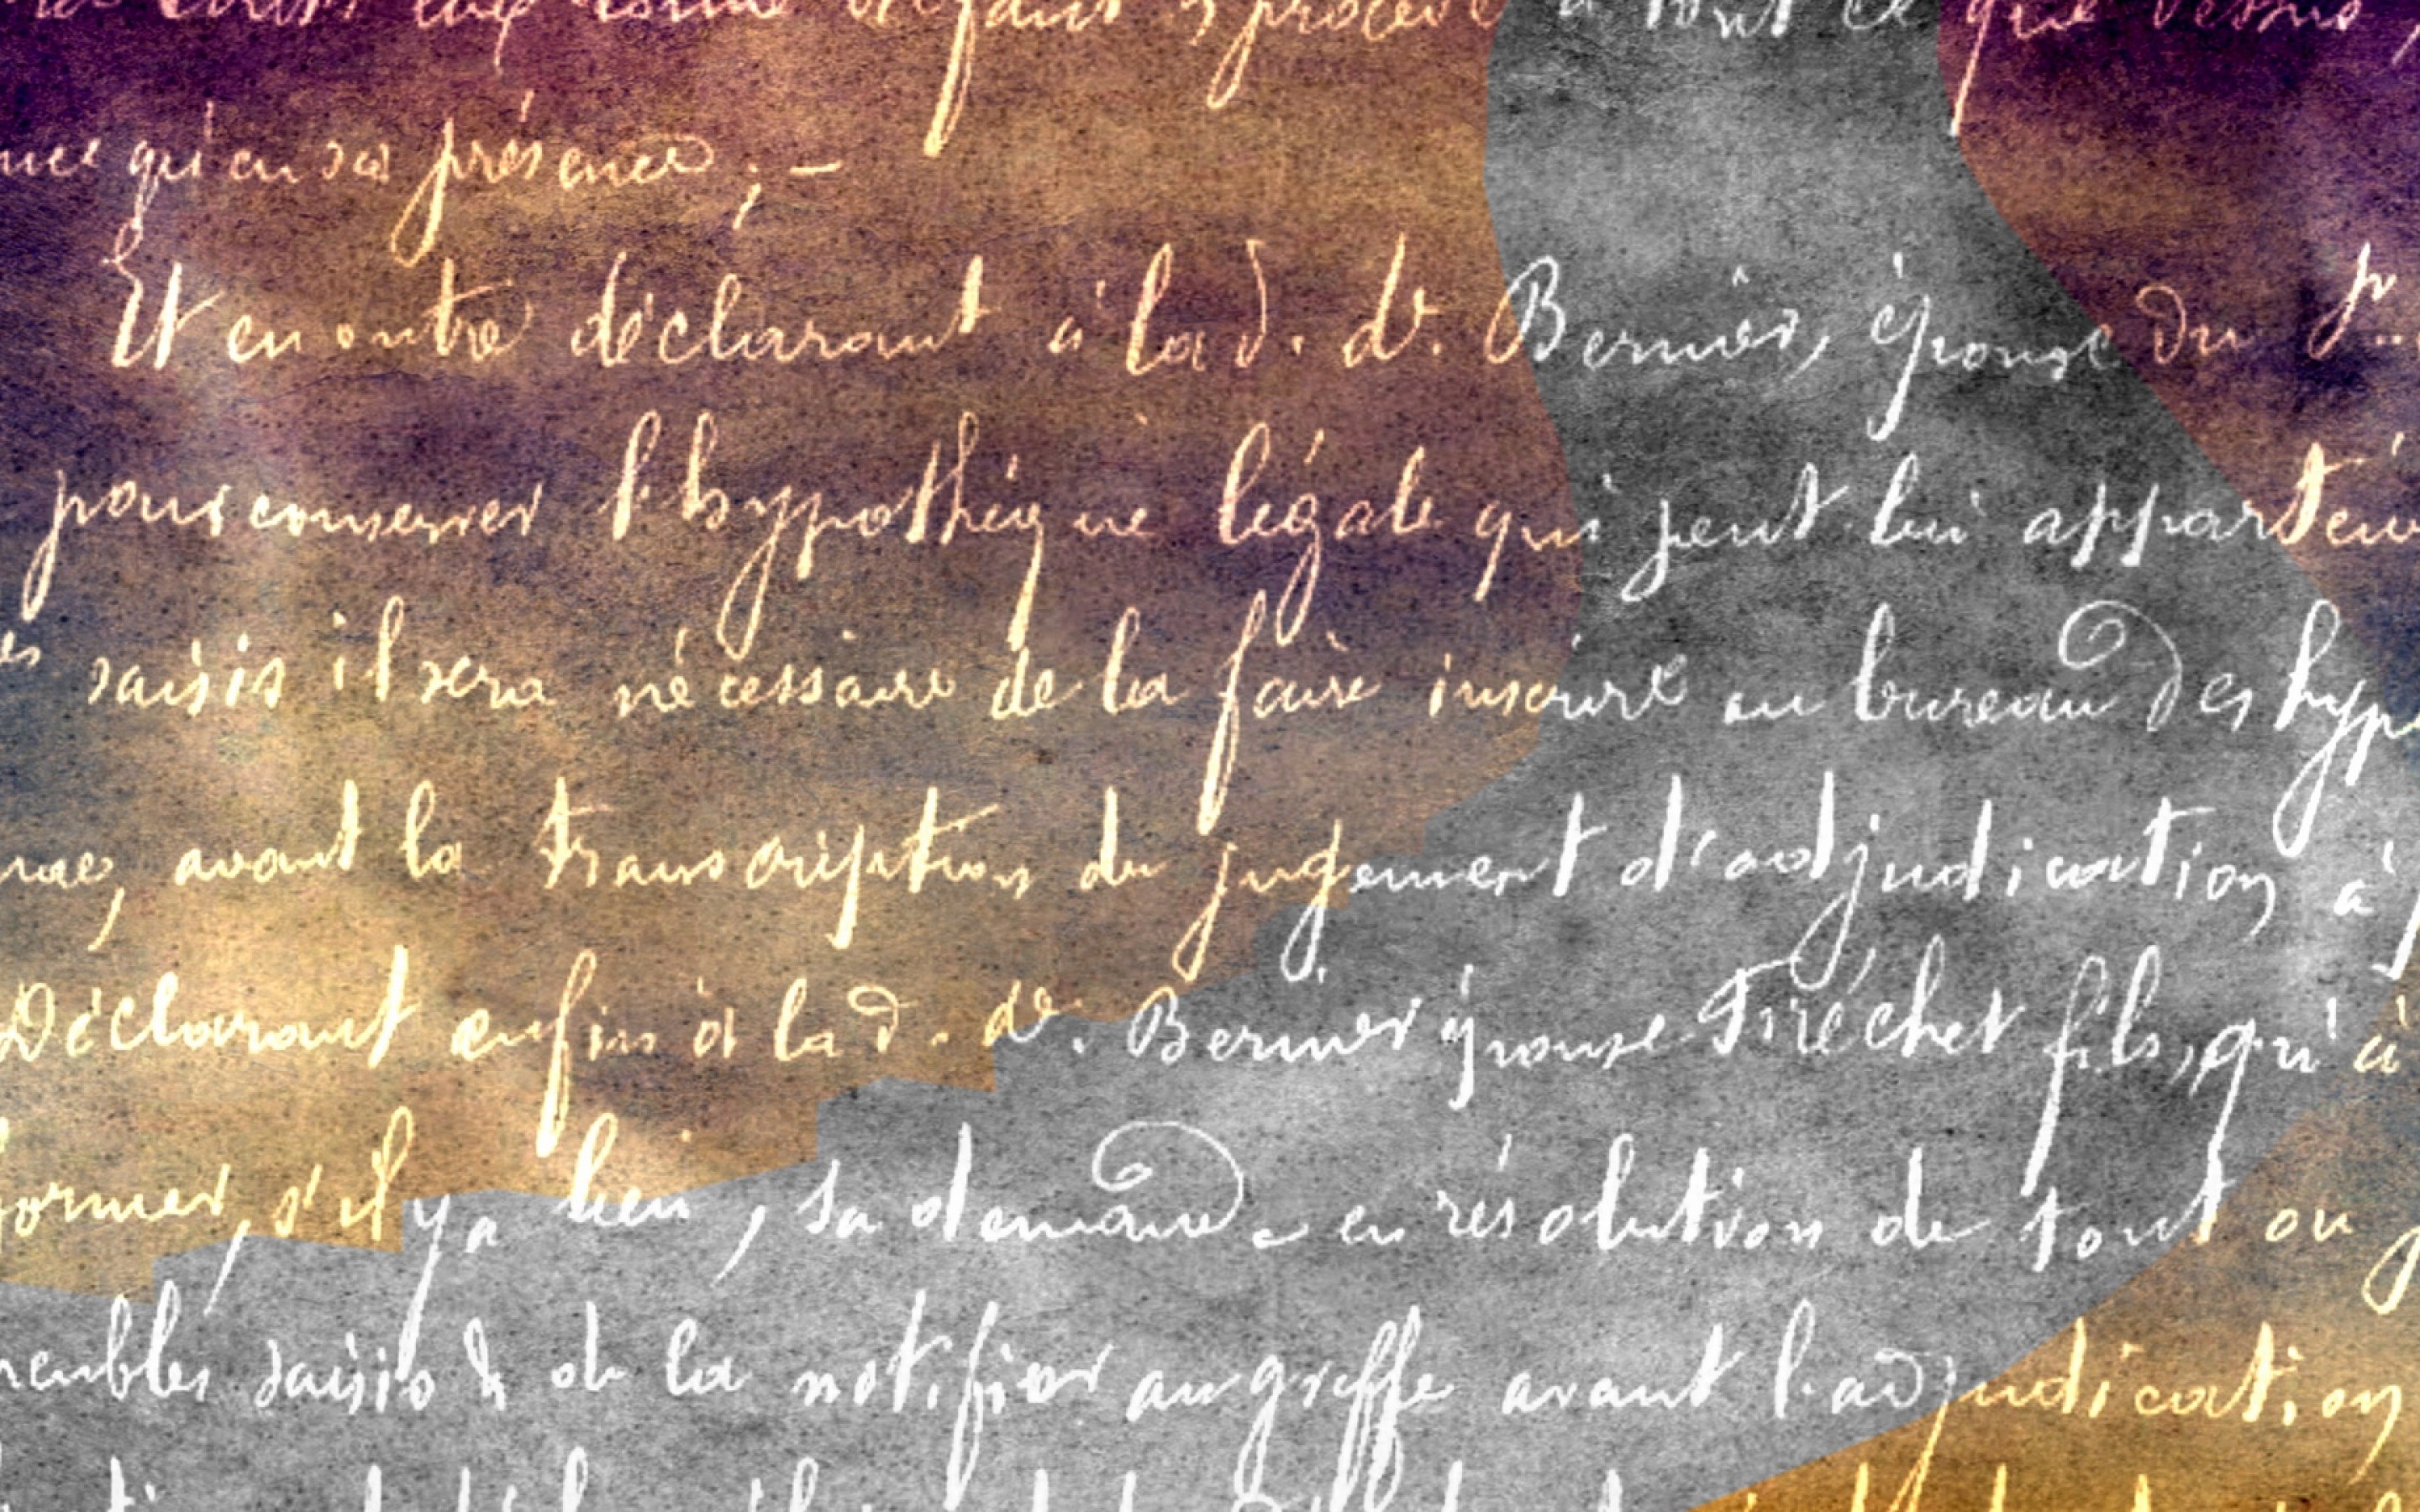 qu'en sa présence ; —
Et en outre déclarant à la d. de. Bernier, épouse du
pour conserver l'hypothèque légale qui peut lui apparten
saisis il sera nécessaire de la faire inscrire au bureau des hyp
avant la transcription du jugement d'adjudication à
Déclarant enfin à la d. de. Bernier épouse Fréchet fils, qu'à
former, s'il y a lieu, sa demande en résolution de tout ou
meubles saisis & de la notifier au greffe avant l'adjudication